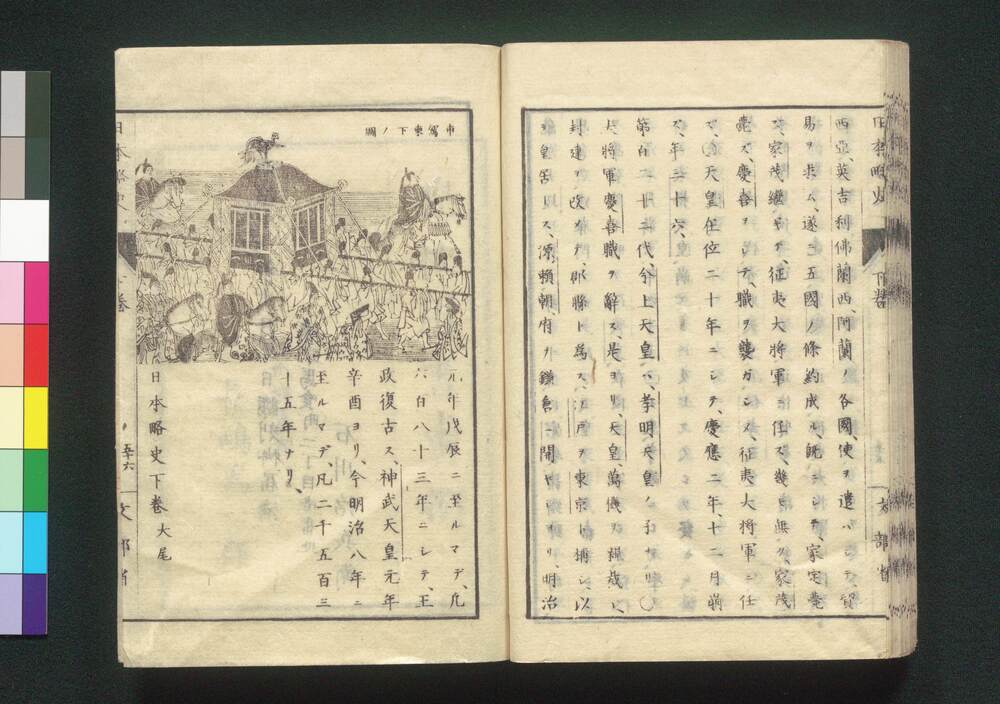 西亞、英吉利佛蘭西阿蘭ノ各國、使ヲ遣ハシテ、貿
易ヲ求ム、遂ニ五國ノ條約成ル、既ニシテ、家定薨
ズ、家茂繼ギテ、征夷大將軍ニ任ズ、幾モ無ク、家茂
薨ズ、慶喜ヲシテ、職ヲ襲ガシメ、征夷大將軍ニ任
ズ、天皇在位二十年ニシテ、慶應二年、十二月崩
ズ、年三十六、
第百二十二代今上天皇ハ、孝明天皇ノ子ナリ、
大將軍慶喜職ヲ辭ス、是ヨリ、天皇、萬機ヲ親裁シ、
封建ヲ改メテ、郡縣ト為ス、江戸ヲ東京ト稱シ、以
テ皇居トス、源頼朝、府ヲ鎌倉ニ開キシヨリ、明治
車駕東下ノ圖
元年戊辰ニ至ルマデ、凡
六百八十三年ニシテ、王
政復古ス、神武天皇元年
辛酉ヨリ、今明治八年ニ
至ルマデ、凡二千五百三
十五年ナリ、
日本略史下巻大尾
文部省
文部省